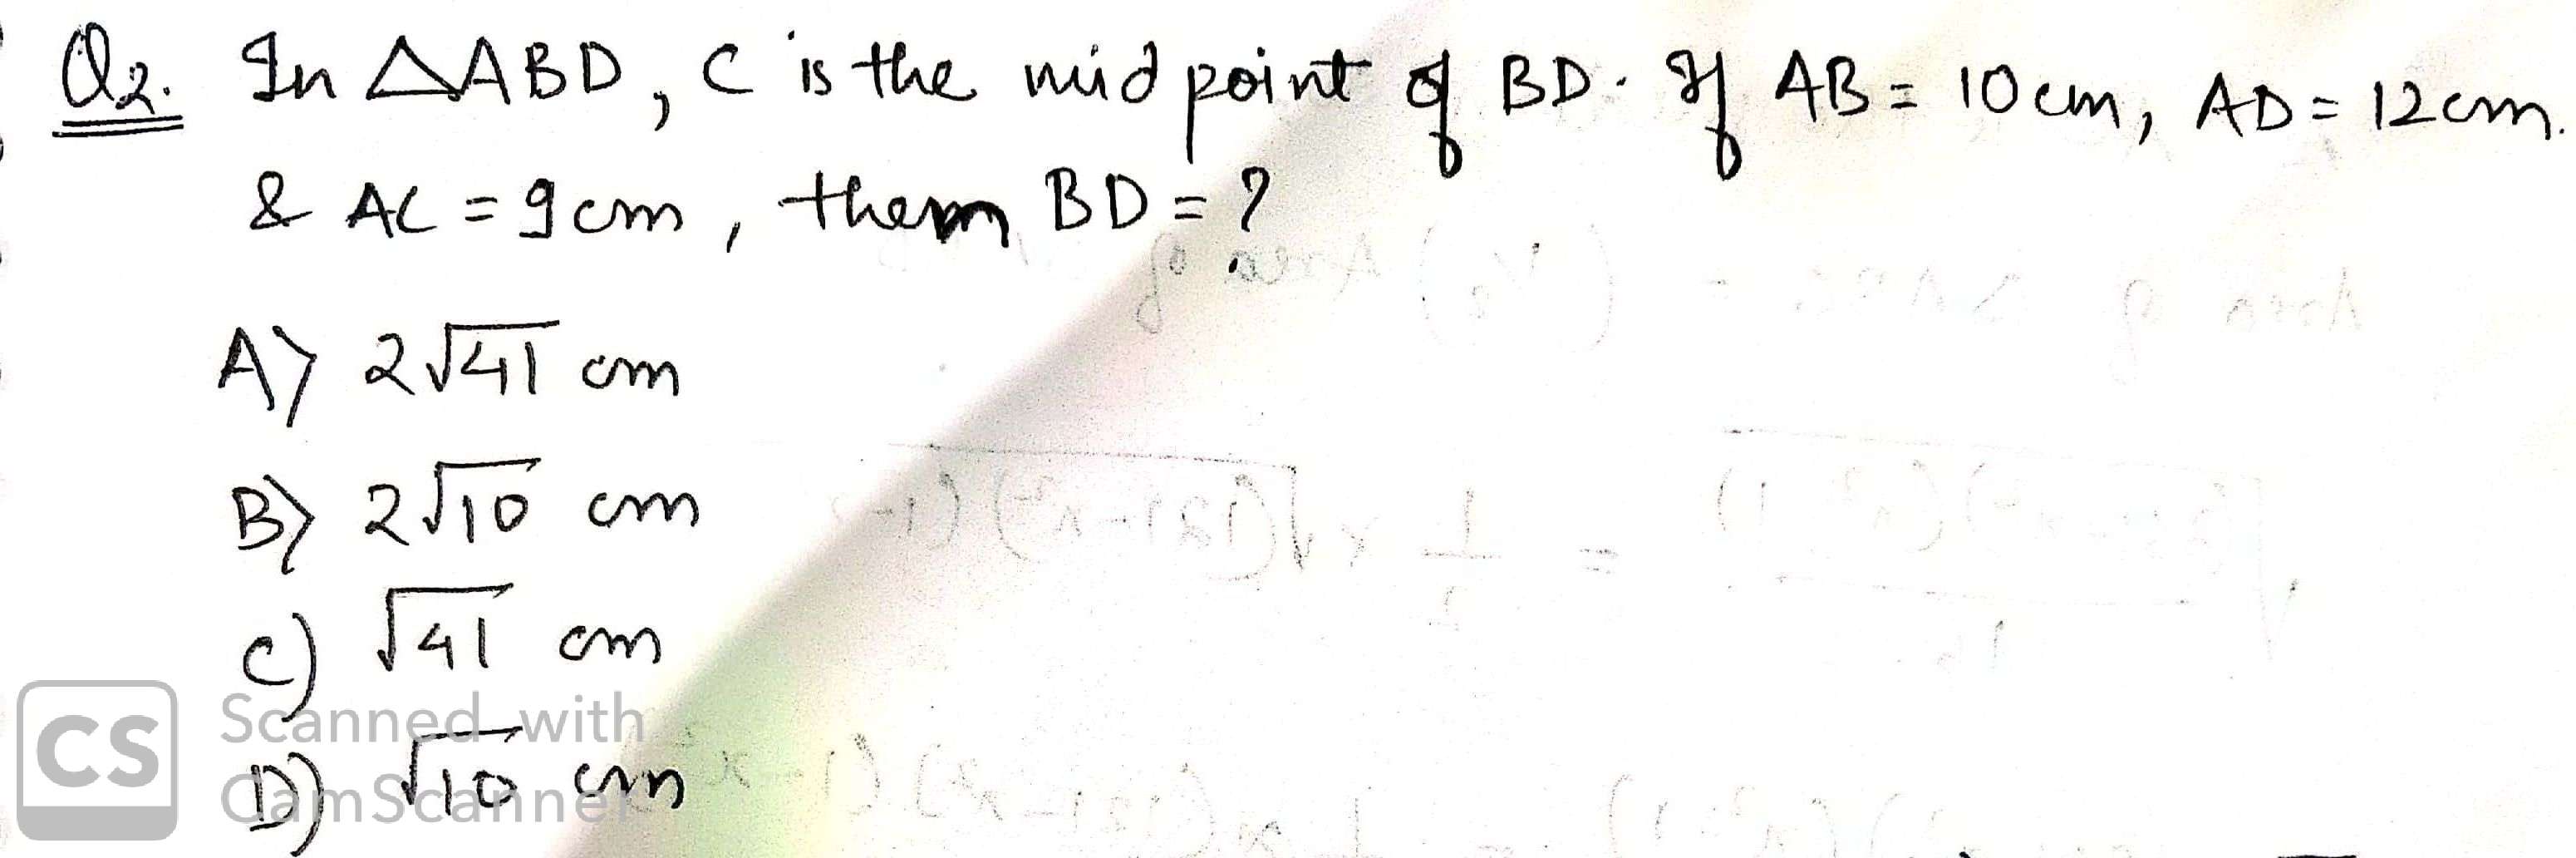 Q2. In △ABD, C is the mid point of BD. If AB = 10 cm, AD = 12 cm.
& AC = 9 cm, then BD = ?
A) 2√41 cm
B) 2√10 cm
C) √41 cm
D) √10 cm
CS Scanned with
CamScanner